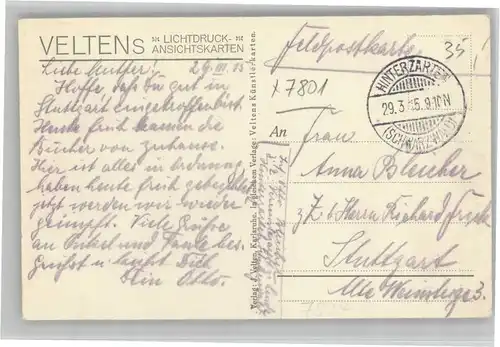 VELTENS LICHTDRUCK-
ANSICHTSKARTEN
Liebe Mutter! 29. III. 15
Hoffe, dass Du gut in
Stuttgart eingetroffen bist.
Heute früh kamen die
Bücher von zuhause.
Hier ist alles in Ordnung
haben heute früh
jetzt werden wir wieder
geimpft. Viele Grüße
an Onkel und Tante bes.
Grüßt u. küsst Dich
Dein Otto.
Verlag: J. Velten, Karlsruhe. In gleichem Verlage: Veltens Künstlerkarten.
Feldpostkarte
35
x 7801
HINTERZARTEN
29.3.15.9-10N
(SCHWARZWALD)
An Frau
Anna Bleicher
z. Z. b. Herrn Richard
Stuttgart
Alte Weinsteige 3.